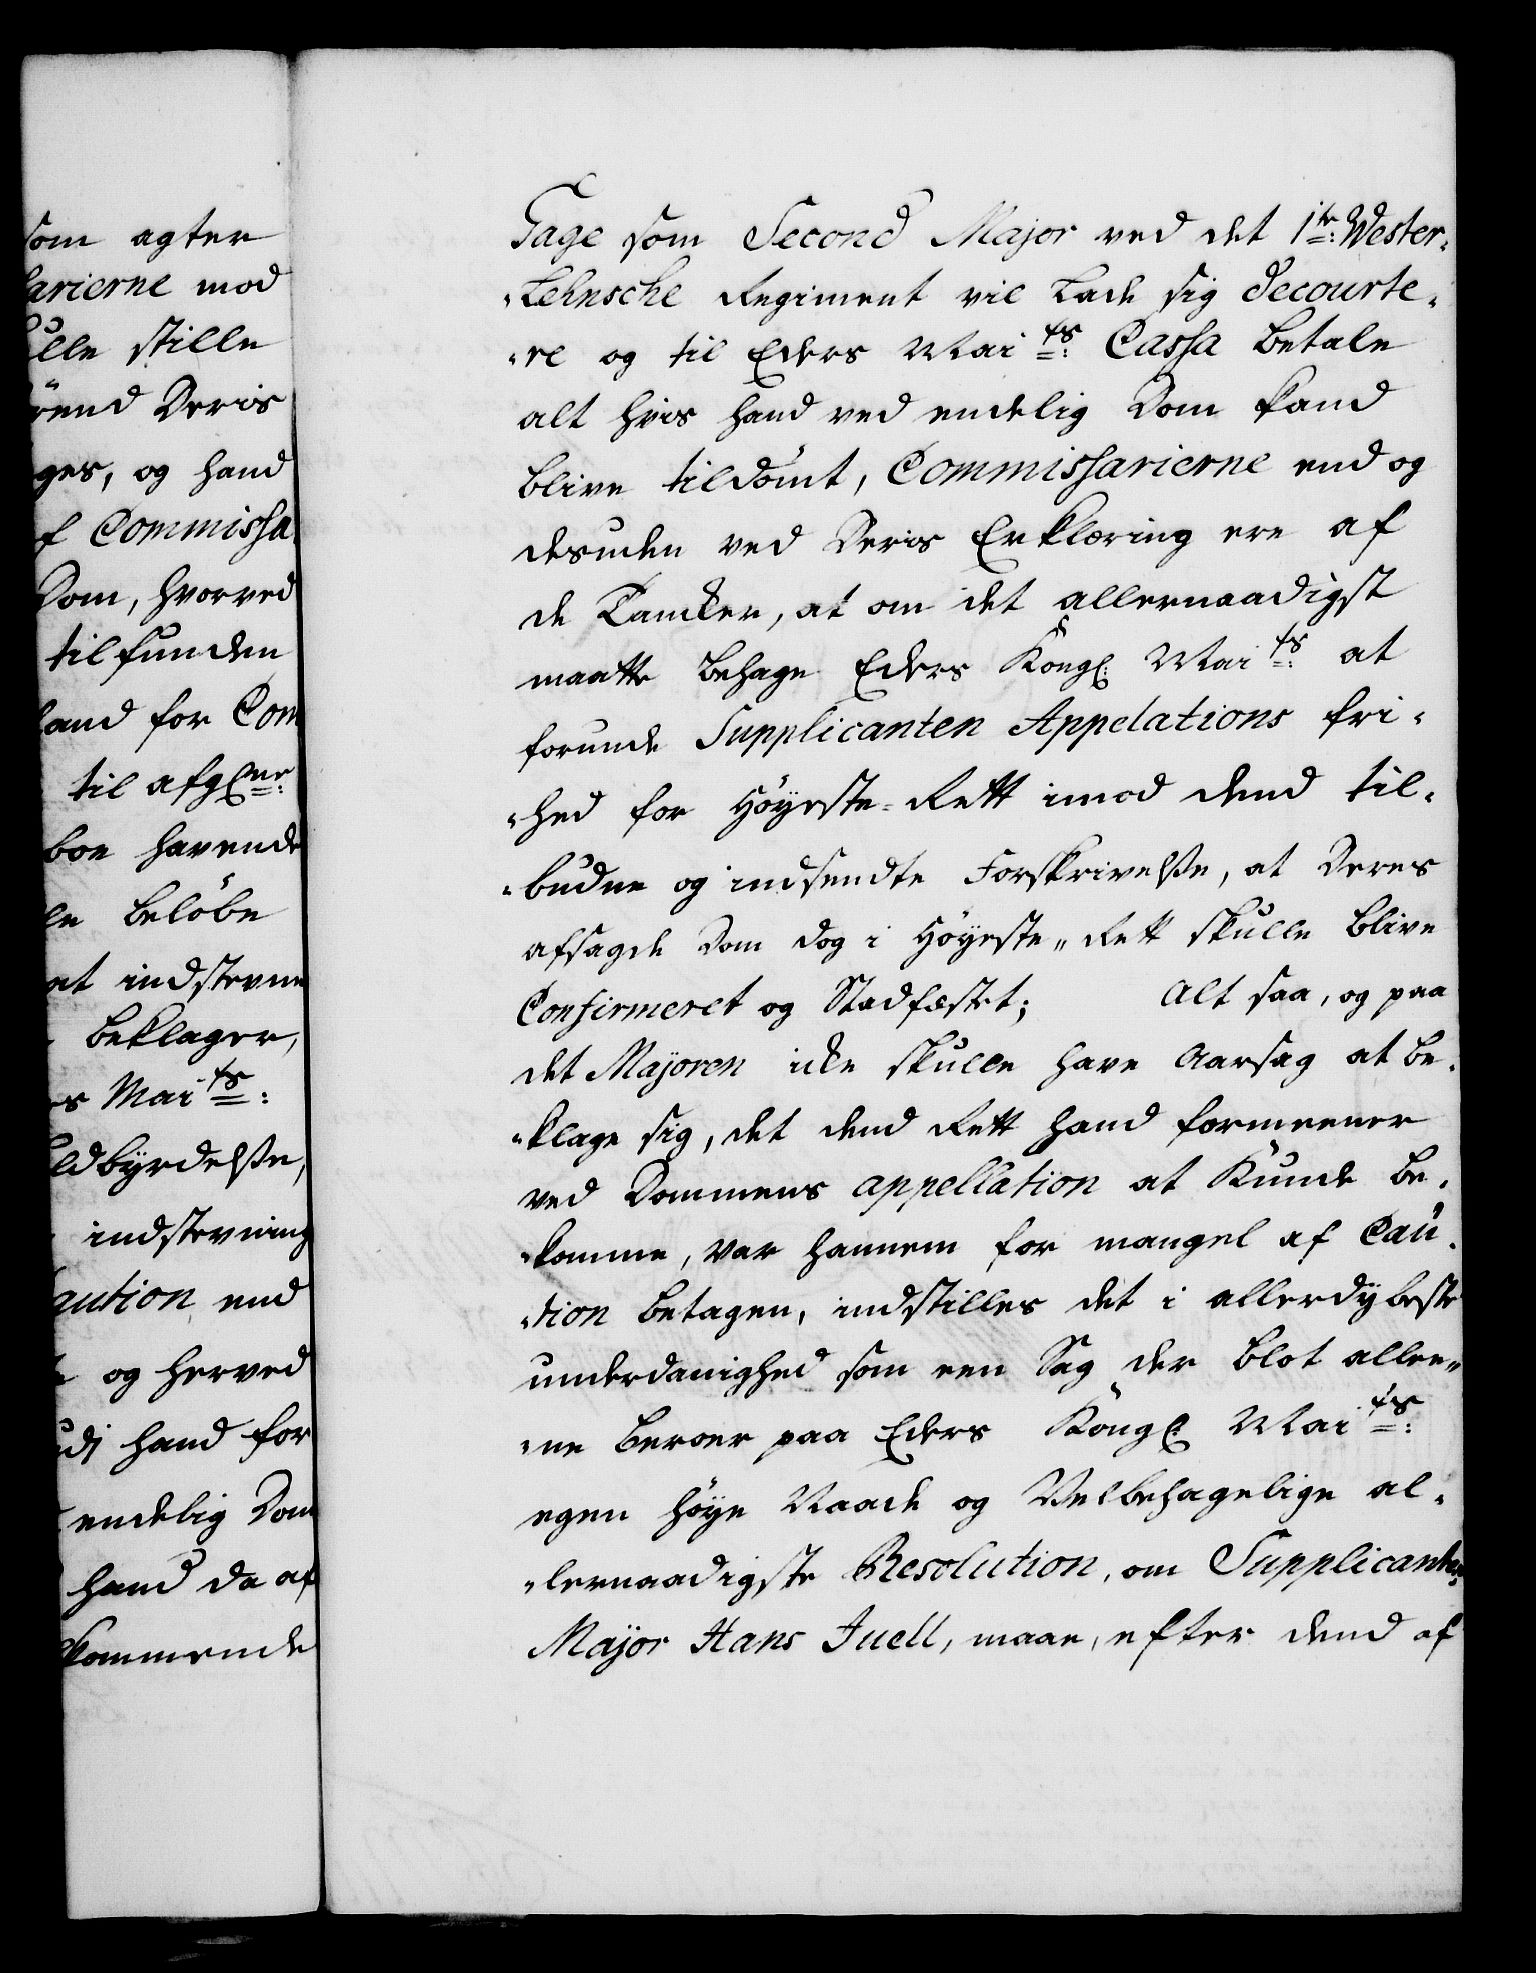 som agter
sarierne mod
ulle stille
rend Deris
ges, og hand
f Commissa
Dom, hvorved
tilfunden
hand for Com
til afgl ne:
boe havende
le beløbe
at indstevne
beklager,
s Mai ts:
ldbyrdelsse,
indstevning
aution end
og herved
hand for
endelig Dom
hand da af
kommende
Gage som Second Major ved det 1te: Wester-
-Lehnsche Regiment vil lade sig decourte-
-re og til Eders Mai ts: Cassa betale
alt hvis hand ved endelig Dom kand
blive tildømt, Commissarierne end og
desuden ved Deris Erklæring ere af
de Tancker, at om det allernaadigst
maatte behage Eders Kongl: Mai ts: at
forunde Supplicanten Appelations fri-
-hed for Høyeste-Rett imod dend til-
-budne og indsendte Forskrivelsse, at Deres
afsagde Dom dog i Høyeste-Rett skulle blive
Confirmeret og Stadfæstet; Alt saa, og paa
det Majoren icke skulle have Aarsag at be-
-klage sig, det dend Rett hand formeener
ved Dommens appellation at kunde be-
-komme, var hannem for mangel af Cau-
-tion betagen, indstilles det i allerdybeste
underdanighed som een Sag der blot allee-
-ne beroer paa Eders Kongl Mai ts:
egen høye Naade og Velbehagelige al-
-lernaadigste Resolution, om Supplicanten
Major Hans Juell, maae, efter dend af